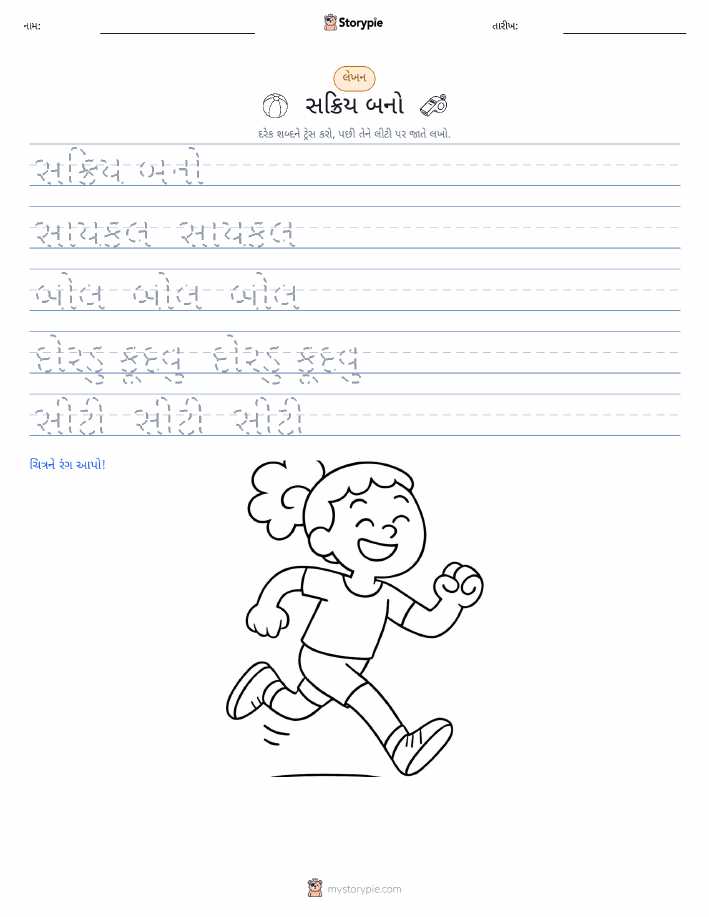 નામ:
Storypie
તારીખ:
લેખન
સક્રિય બનો
દરેક શબ્દને ટ્રેસ કરો, પછી તેને લીટી પર જાતે લખો.
સક્રિય બનો
સાયકલ સાયકલ
બોલ બોલ બોલ
દોરડુ કૂદવુ દોરડુ કૂદવુ
સીટી સીટી સીટી
ચિત્રને રંગ આપો!
mystorypie.com